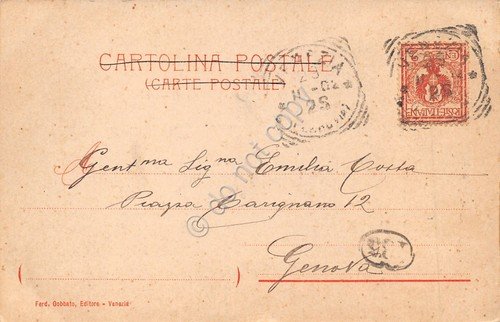 CARTOLINA POSTALE
(CARTE POSTALE)
do not copy
Gent.ma Sig.na Emilia Costa
Piazza Carignano 12
Genova
Ferd. Gobbato, Editore - Venezia